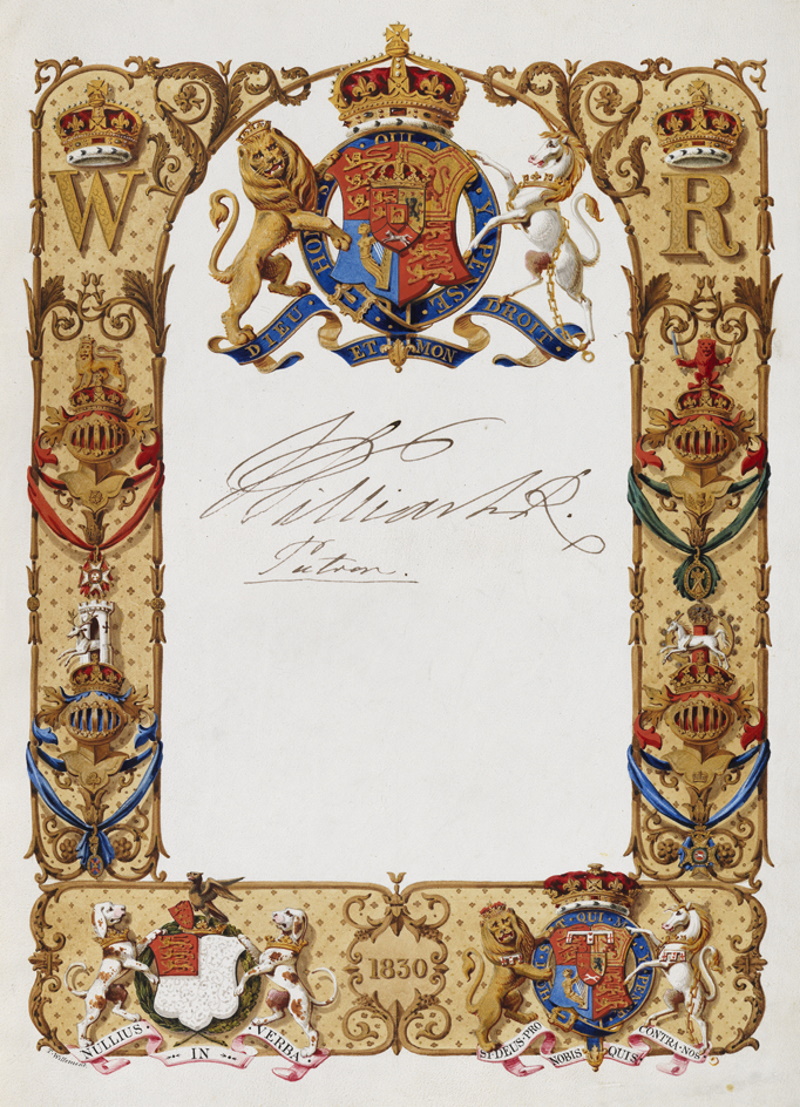 W R
HONI SOIT QUI MAL Y PENSE
DIEU ET MON DROIT
William R.
Patron.
1830
NULLIUS IN VERBA
SI DEUS PRO NOBIS QUIS CONTRA NOS
T. Willement